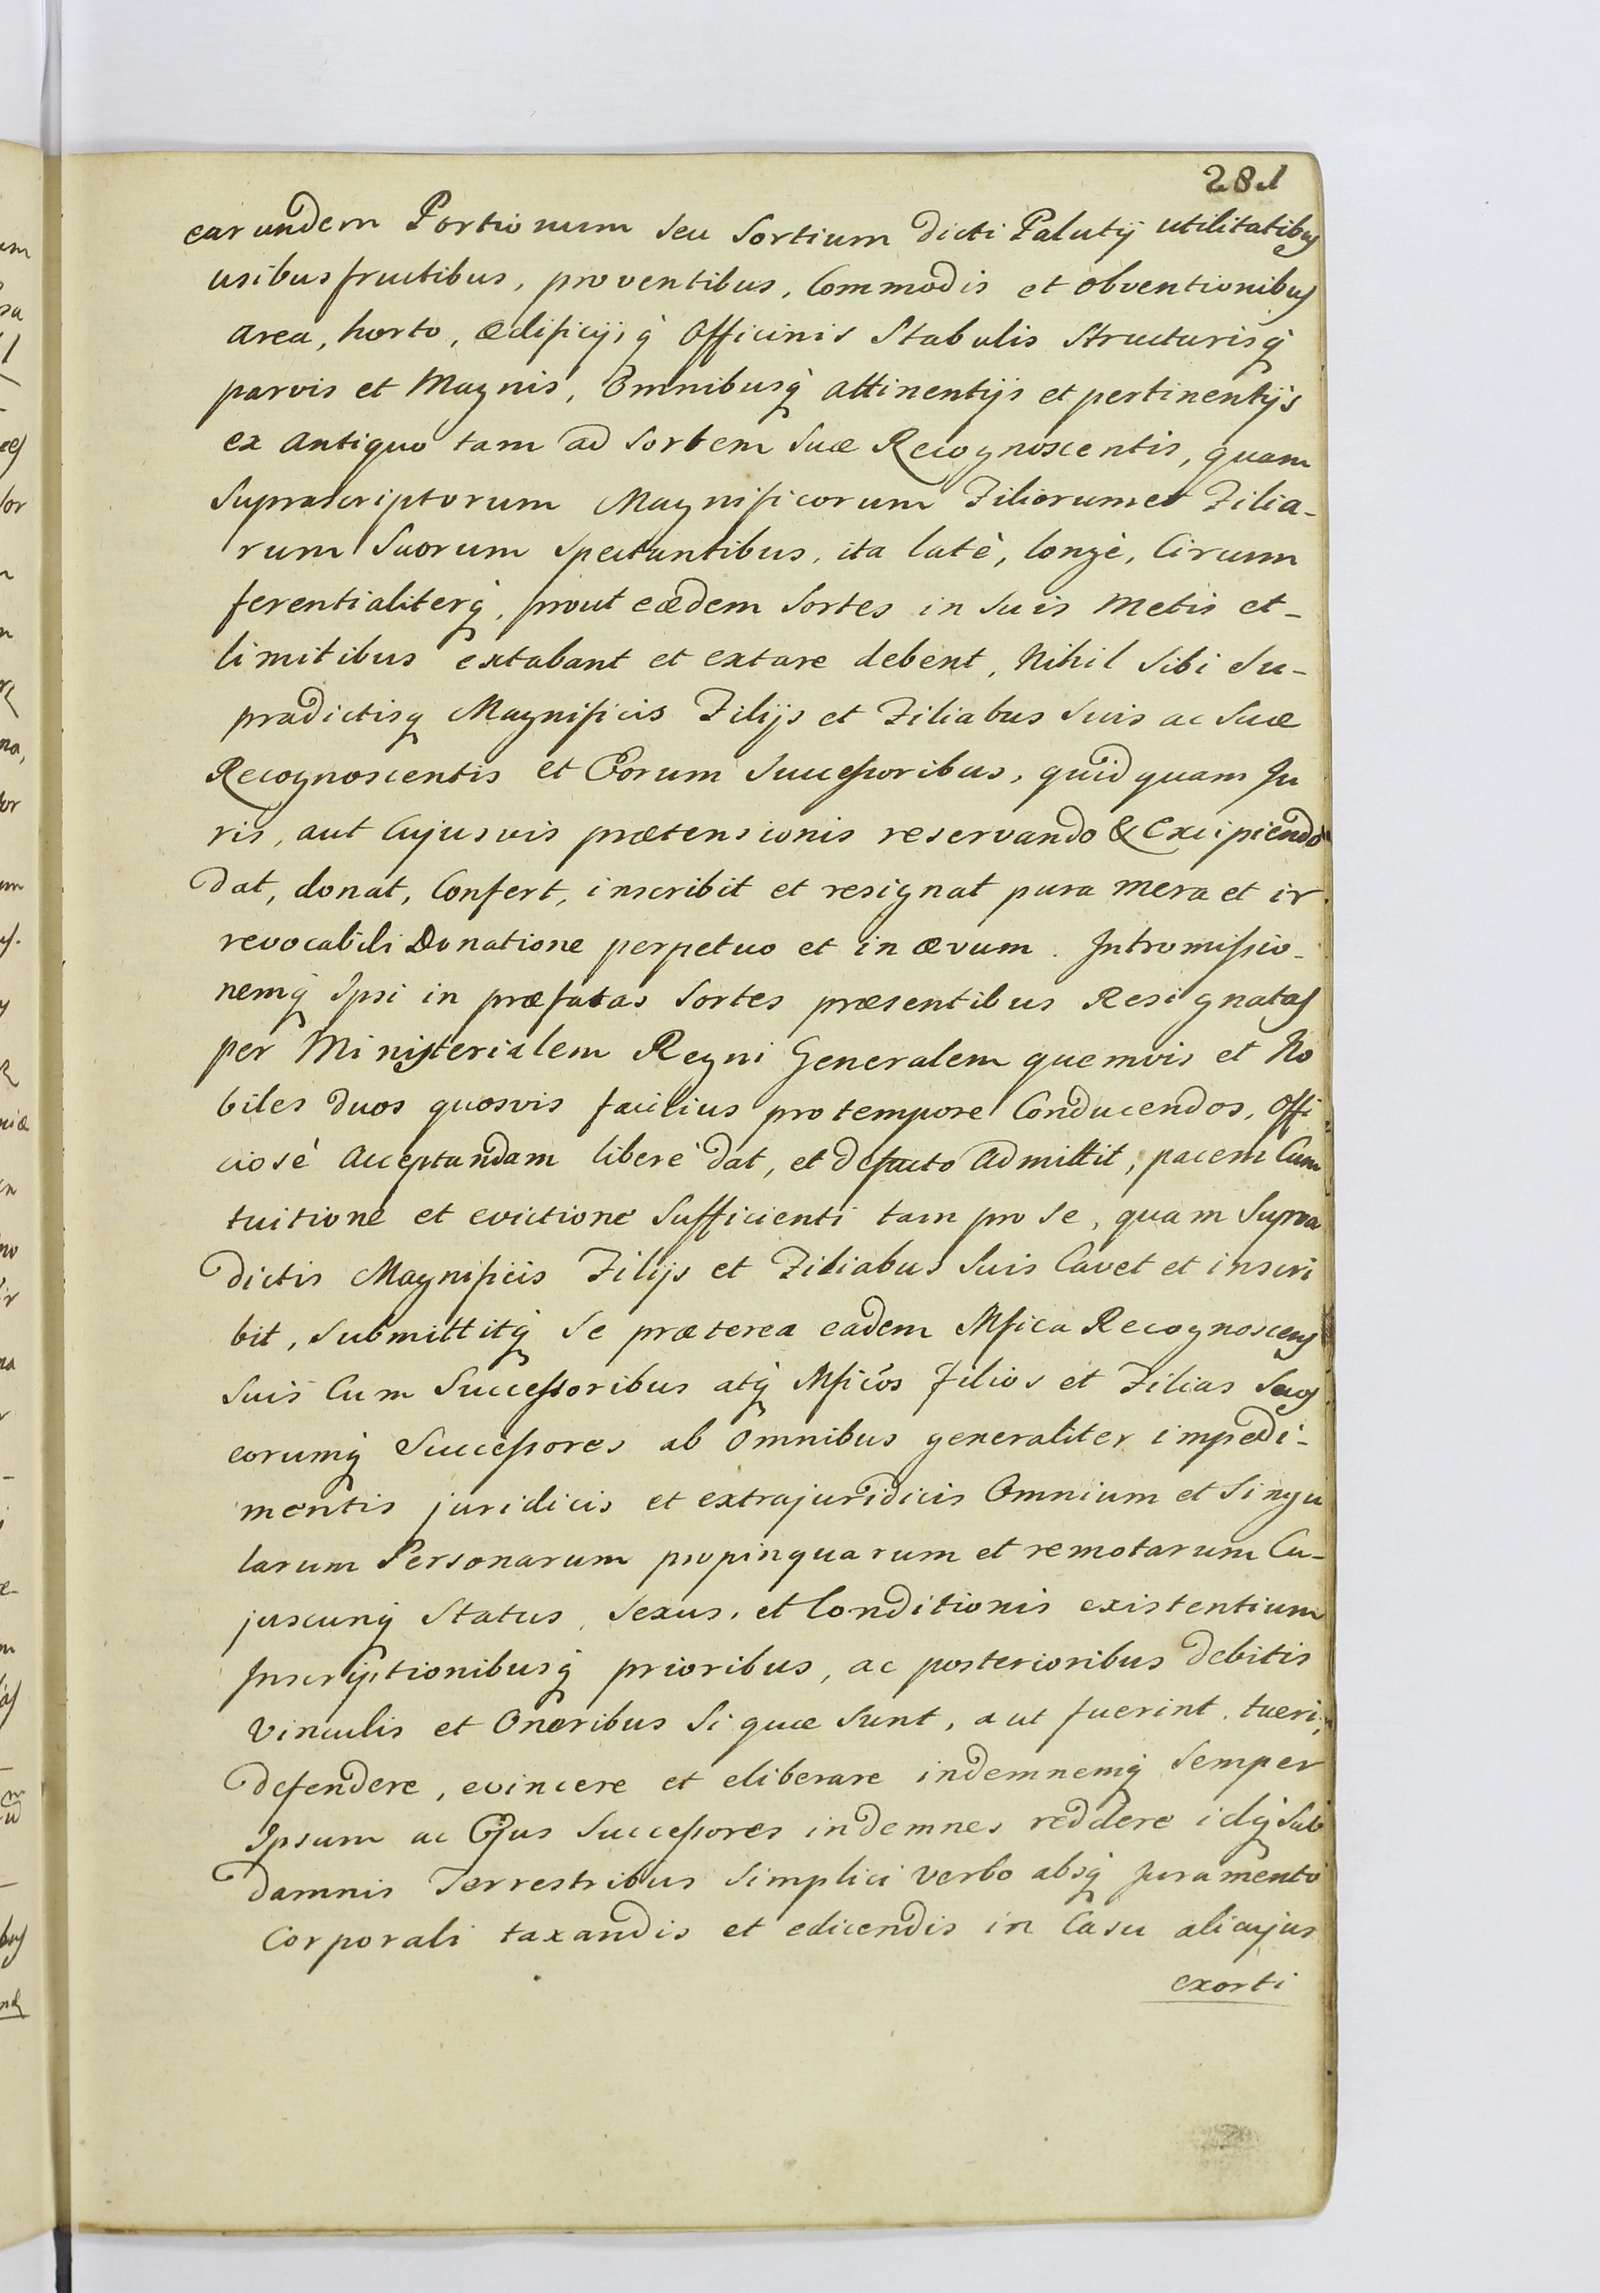 281
earundem Portionum seu Sortium dicti Palutij utilitatibus
usibusfructibus, proventibus, Commodis et obventionibus
area, horto, ædificijsq̀ Officinis Stabulis Structurisq̀
parvis et Magnis, Omnibusq̀ attinentijs et pertinentijs
ex antiquo tam ad Sortem Suæ Recognoscentis, quam
Suprascriptorum Magnificorum Filiorum et Filia-
rum Suorum Spectantibus, ita latè, longè, Circum
ferentialiterq̀, prout eædem Sortes in Suis Metis et-
limitibus extabant et extare debent, Nihil Sibi Su-
pradictisq Magnificis Filijs et Filiabus Suis ac Suæ
Recognoscentis et Eorum Successoribus, quidquam Ju
ris, aut Cujusvis prætensionis reservando & Excipiendo
dat, donat, Confert, inscribit et resignat pura mera et ir
revocabili Donatione perpetuo et in ævum. Intromissio-
nemq̀ Ipsi in præfatas Sortes præsentibus Resignatas
per Ministerialem Regni Generalem quemvis et No
biles duos quosvis facilius pro tempore Conducendos, Offi
ciosè Acceptandam liberè dat, et defacto Admittit, pacem Cum
tuitione et evictione Sufficienti tam pro Se, quam Supra
dictis Magnificis Filijs et Filiabus Suis Cavet et inscri
bit, Submittitq̀ Se præterea eadem Mfica Recognoscens
Suis Cum Successoribus atq̀ Mficos Filios et Filias Suos
eorumq̀ Successores ab Omnibus generaliter impedi-
mentis juridicis et extrajuridicis Omnium et Singu
larum Personarum propinquarum et remotarum Cu-
juscunq̀ Status, Sexus, et Conditionis existentium
Inscriptionibusq̀ prioribus, ac posterioribus debitis
Vinculis et Oneribus Si quæ Sunt, aut fuerint, tueri,
defendere, evincere et eliberare indemnemq̀ Semper
Ipsum ac Ejus Successores indemnes reddere idq̀ Sub
damnis Terrestribus Simplici Verbo absq̀ Juramento
Corporali taxandis et edicendis in Casu alicujus
exorti